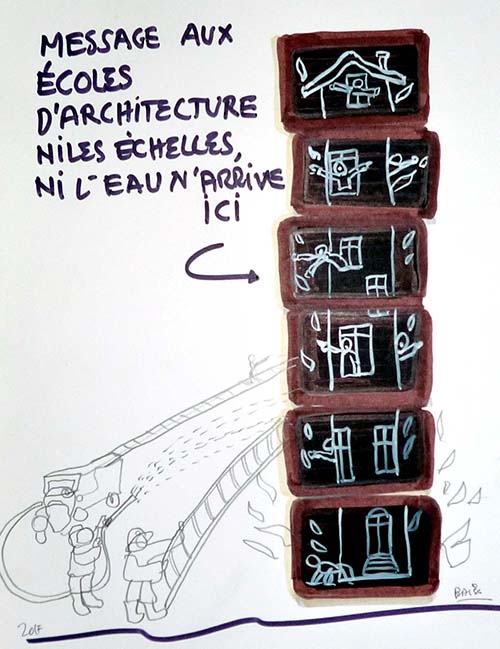 MESSAGE AUX
ÉCOLES
D'ARCHITECTURE
NI LES ÉCHELLES,
NI L'EAU N'ARRIVE
ICI
2017